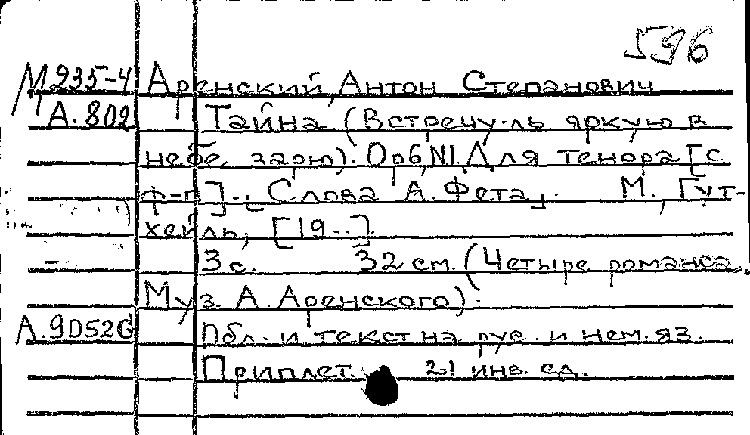 596
М235-4 Аренский, Антон Степанович
А.802 Тайна (Встречу-ль яркую в
небе зарю). Op6, N1. Для тенора [с
ф-п]. [Слова А. Фета]. М., Гут-
хейль, [19--].
3 с. 32 см. (Четыре романса.
Муз. А. Аренского).
А.9052G Обл. и текст на рус. и нем. яз.
Приплет. 21 инв. ед.